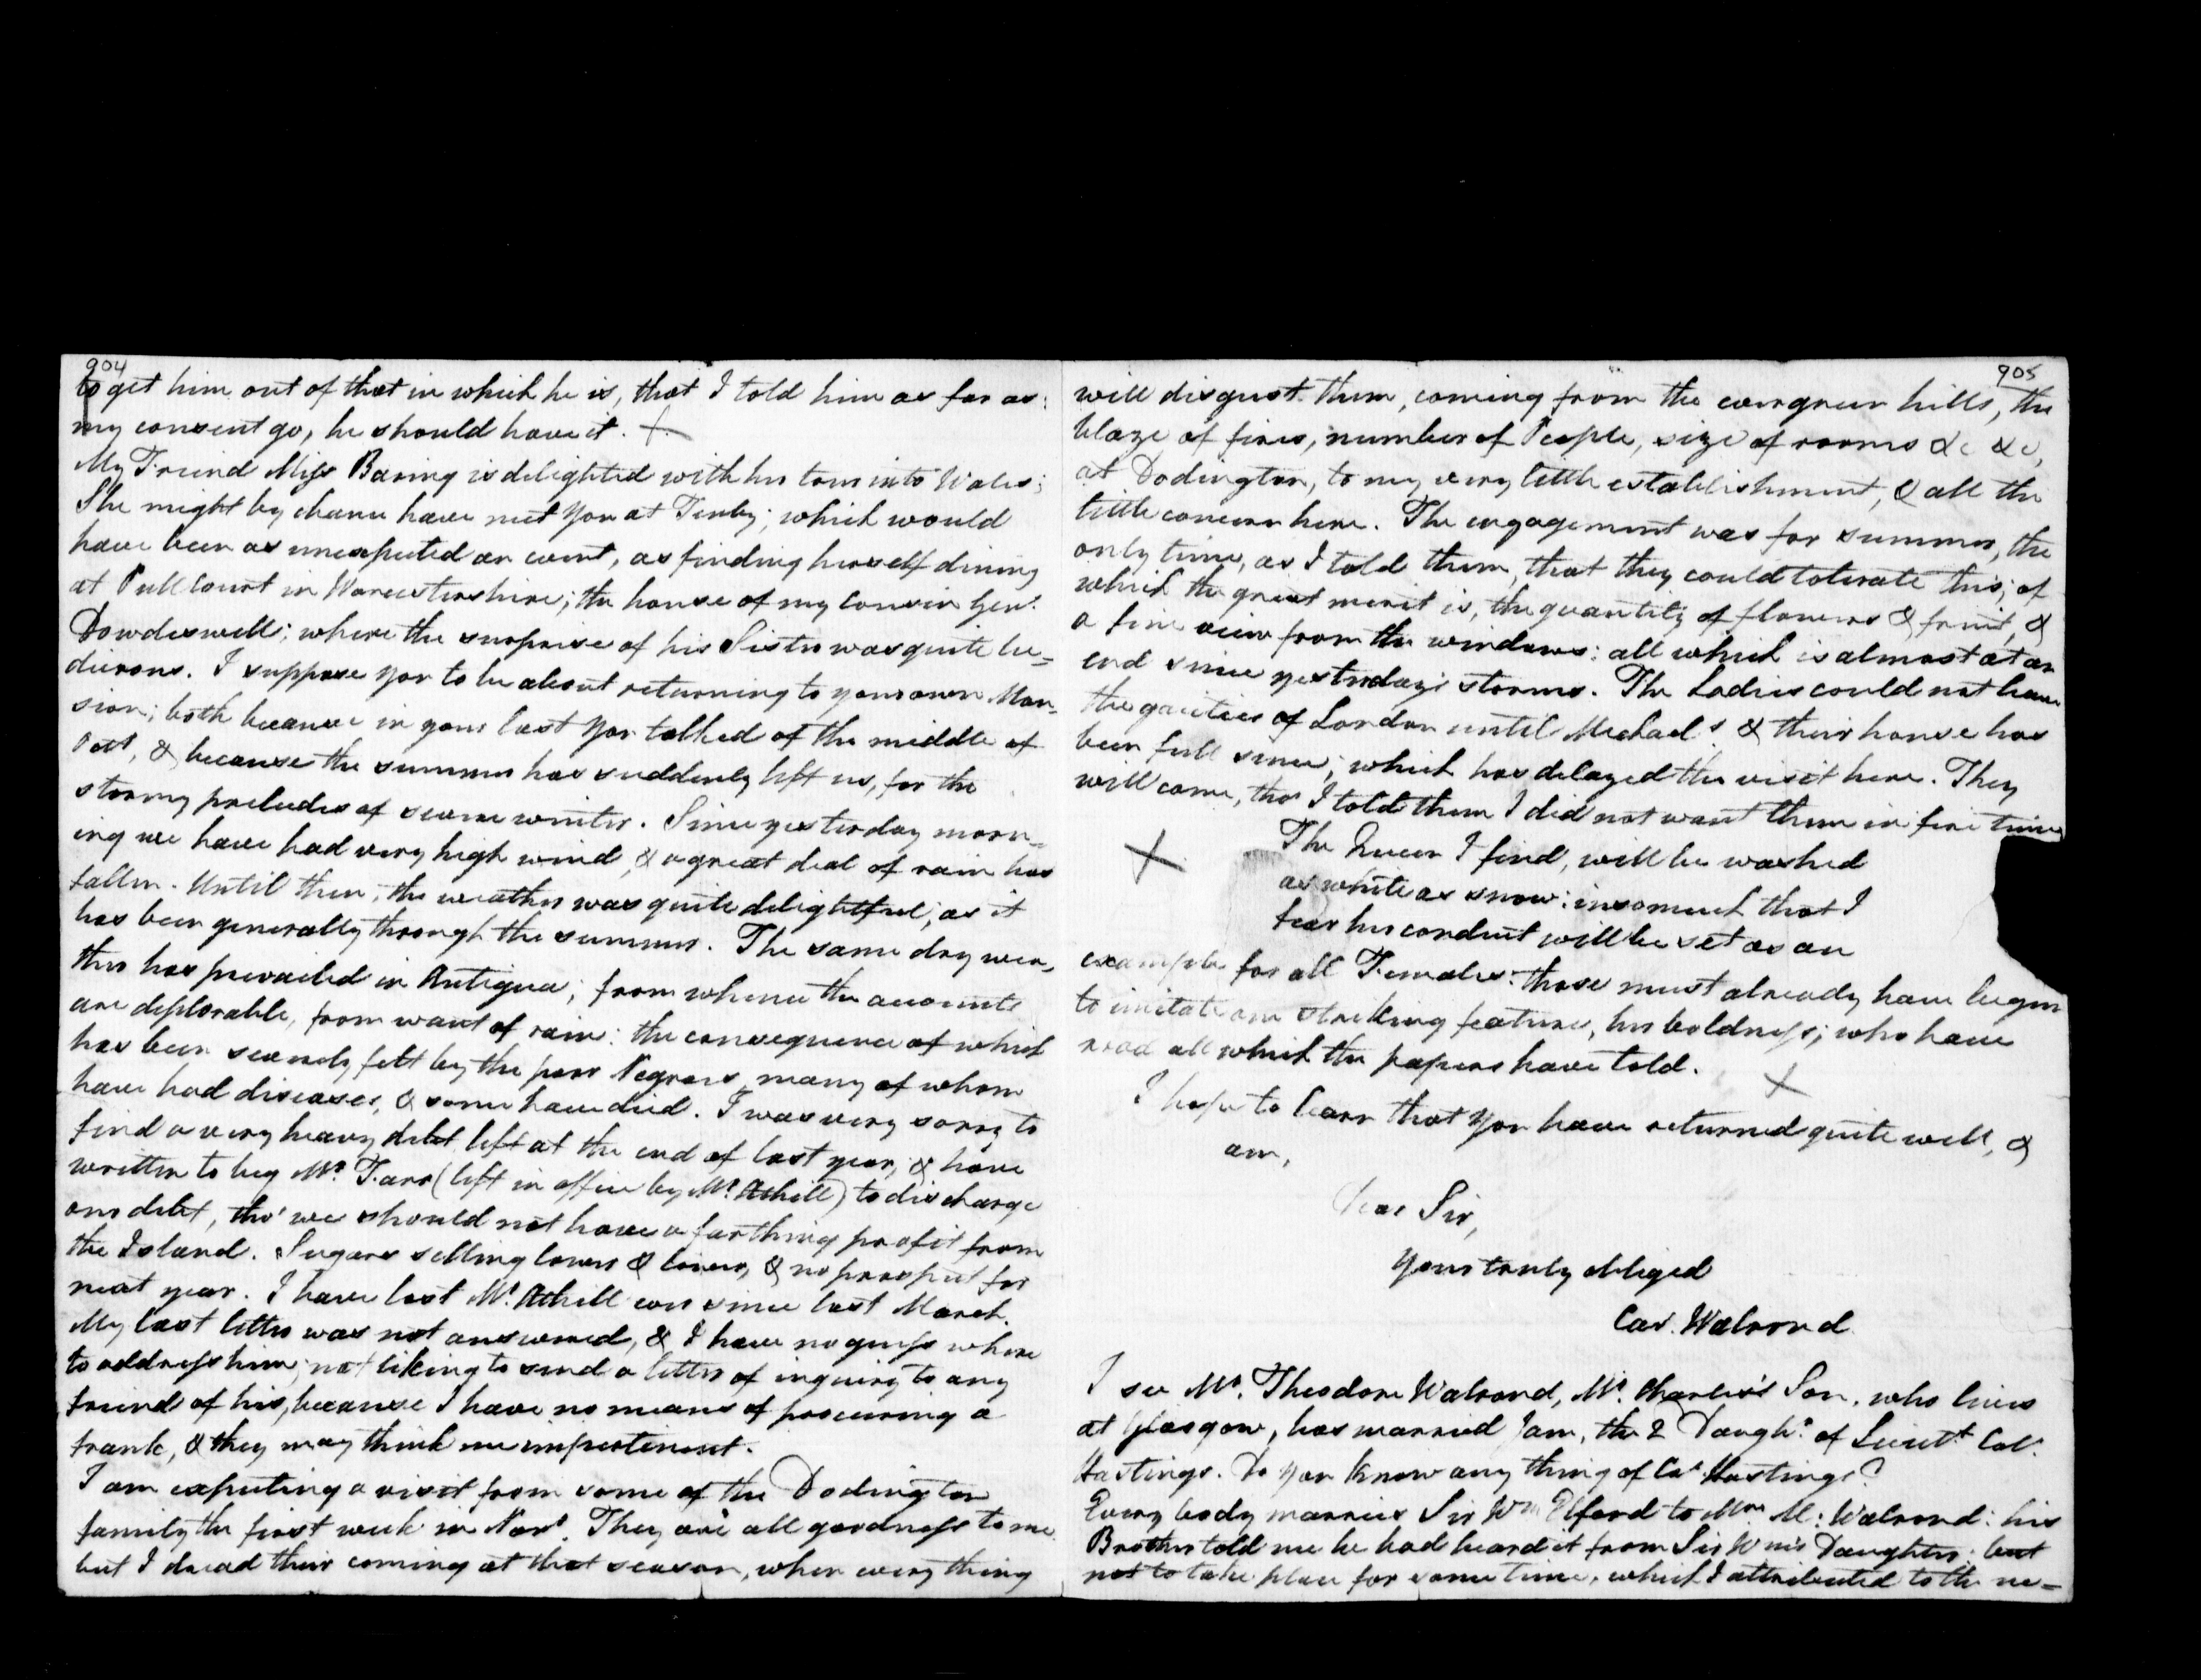 904
to get him out of that in which he is, that I told him as far as
my consent go, he should have it. X
My Friend Miss Baring is delighted with her tour into Wales;
She might by chance have met you at Tenby; which would
have been as unexpected an event, as finding herself dining
at Pull Court in Worcestershire; the house of my Cousin Genl.
Dowdeswell; where the surprise of his Sister was quite lu=
dicrous. I suppose you to be about returning to your own Man=
sion; both because in your last you talked of the middle of
Octr, & because the summer has suddenly left us, for the
stormy preludes of severe winter. Since yesterday morn=
ing we have had very high wind, & a great deal of rain has
fallen. Until then, the weather was quite delightful; as it
has been generally through the summer. The same dry wea=
ther has prevailed in Antigua; from whence the accounts
are deplorable, from want of rain: the consequence of which
has been severely felt by the poor Negroes, many of whom
have had diseases, & some have died. I was very sorry to
find a very heavy debt left at the end of last year, & have
written to beg Mr. Farr (left in office by Mr. Athill) to discharge
our debt, tho' we should not have a farthing profit from
the Island. Sugars selling lower & lower, & no prospect for
next year. I have lost Mr. Athill ever since last March.
My last letter was not answered, & I have no guess where
to address him; not liking to send a letter of inquiry to any
friend of his, because I have no means of procuring a
frank, & they may think me impertinent.
I am expecting a visit from some of the Dodington
family the first week in Novr. They are all goodness to me
but I dread their coming at that season, when every thing
905
will disgust them, coming from the evergreen hills, the
blaze of fires, number of People, size of rooms &c &c,
at Dodington, to my very little establishment, & all the
little concern here. The engagement was for summer, the
only time, as I told them, that they could tolerate this; of
which the great merit is, the quantity of flowers & fruit, &
a fine view from the windows: all which is almost at an
end since yesterday's storms. The Ladies could not leave
the gaieties of London until Michaels. & their house has
been full since; which has delayed the visit here. They
will come, tho' I told them I did not want them in fire time
X The Queen I find, will be washed
as white as snow: insomuch that I
fear her conduct will be set as an
example for all Females: those must already have begun
to imitate one striking feature, her boldness; who have
read all which the papers have told. X
I hope to learn that you have returned quite well, &
am,
Dear Sir,
Yours truly obliged
Car. Walrond.
I see Mr. Theodore Walrond, Mr. Charles's Son, who lives
at Glasgow, has married Jane, the 2 Daughr. of Lieutt. Col.
Hastings. Do you know any thing of Col. Hastings?
Every body marries Sir Wm Elford to Mrs M: Walrond: his
Brother told me he had heard it from Sir Wm's Daughter: but
not to take place for some time, which I attributed to the ne=